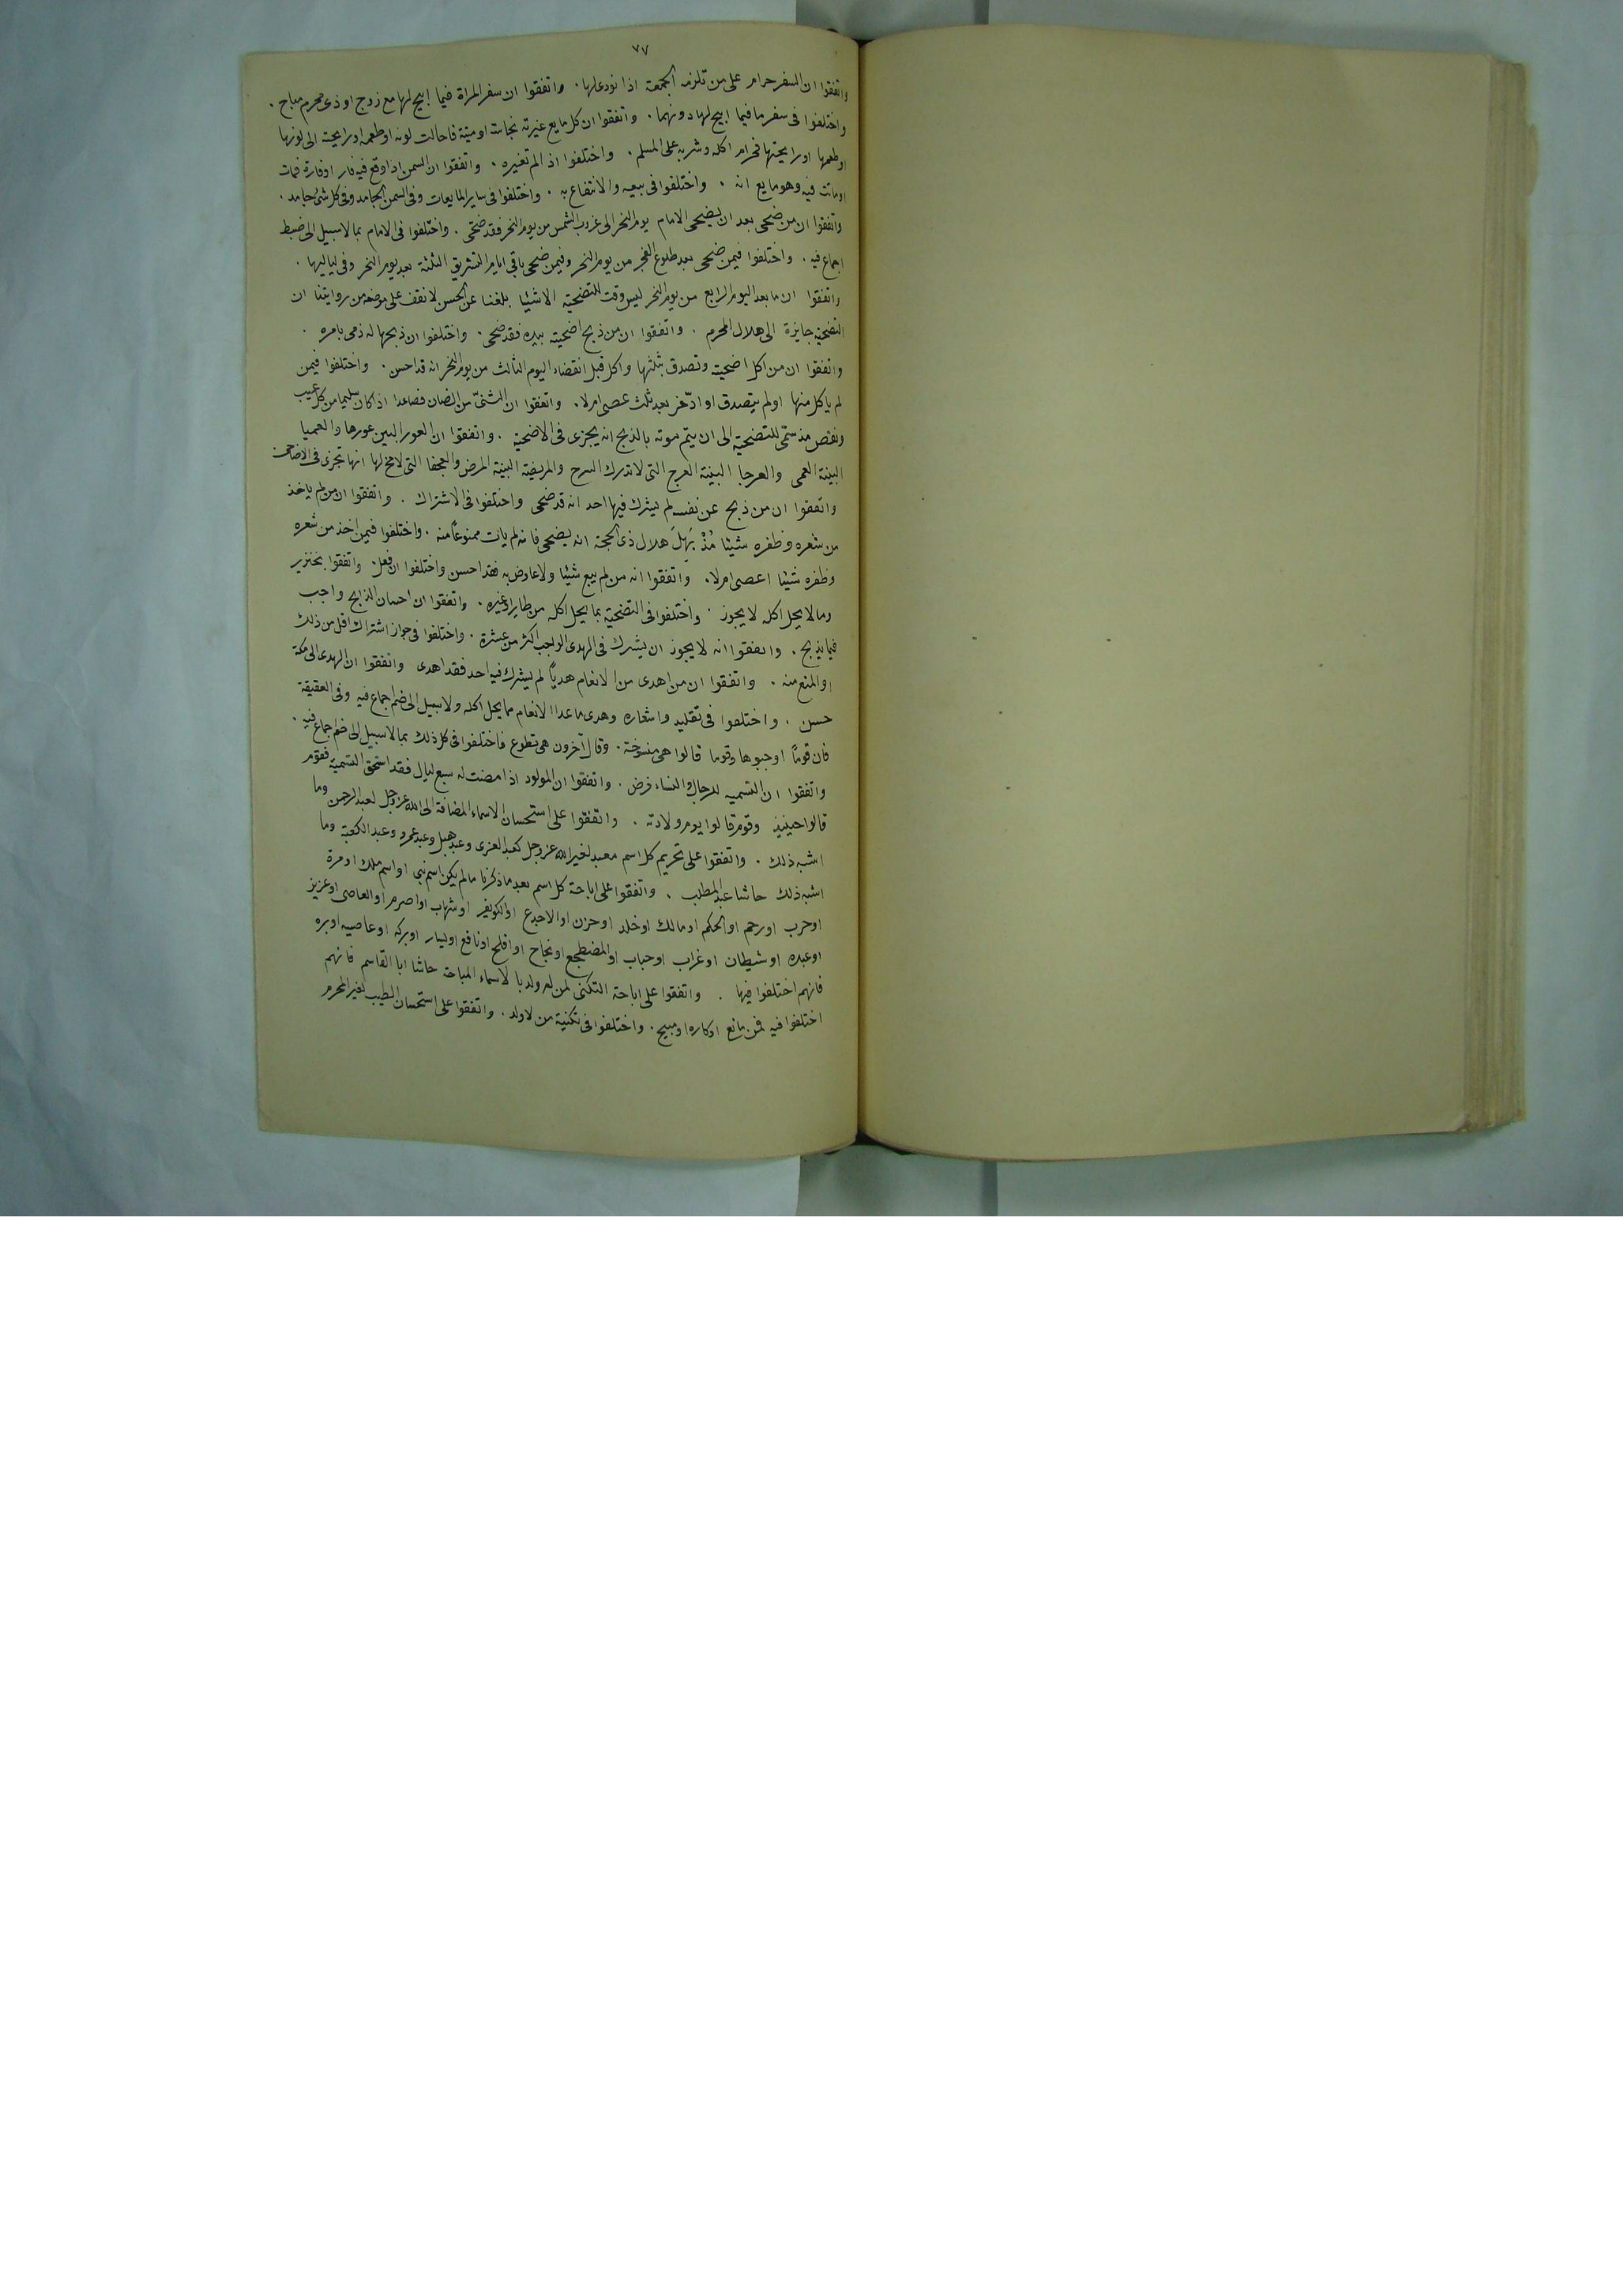 ٧٧
واتفقوا ان السفر حرام على من تلزمه الجمعة اذا نودى لها . واتفقوا ان سفر المراة فيما ابيح لها مع زوج او ذى محرم مباح .
واختلفوا فى سفرها فيما ابيح لها دونهما . واتفقوا ان كل مايع غيرته نجاسة او ميتة فاحالت لونه او طعمه او رايحته الى لونها
او طعمها او رايحتها فحرام اكله وشربه على المسلم . واختلفوا اذ الم تغيره . واتفقوا ان السمن اذا وقع فيه فار او فارة فمات
او ماتت فيه وهو مايع انه . واختلفوا فى بيعه والانتفاع به . واختلفوا فى ساير المايعات وفى السمن الجامد وفى كل شئ جامد .
واتفقوا ان من ضحى بعد ان يضحى الامام يوم النحر الى غروب الشمس من يوم النحر فقد ضحى . واختلفوا فى الامام بما لا سبيل الى ضبط
اجماع فيه . واختلفوا فيمن ضحى بعد طلوع الفجر من يوم النحر وفيمن ضحى باقى ايام التشريق الثلثة بعد يوم النحر وفى لياليها .
واتفقوا ان ما بعد اليوم الرابع من يوم النحر ليس وقت للتضحية الا شيئا بلغنا عن الحسن لا نقف على موضعه من روايتنا ان
التضحية جايزة الى هلال المحرم . واتفقوا ان من ذبح اضحيته بيده فقد ضحى . واختلفوا ان ذبحها له ذمى بامره .
واتفقوا ان من اكل اضحيته وتصدق بثلثها واكل قبل انقضاء اليوم الثالث من يوم النحر انه قد احسن . واختلفوا فيمن
لم ياكل منها او لم يتصدق او ادخر بعد ثلث عصى ام لا . واتفقوا ان الثنى من الضان فصاعدا اذا كان سليما من كل عيب
ونقص مذ سمى للتضحية الى ان يتم موته بالذبح انه يجزى فى الاضحية . واتفقوا ان العورا البين عورها والعميا
البينة العمى والعرجا البينة العرج التى لا تدرك السرح والمريضة البينة المرض والعجفا التى لا مخ لها انها تجزى فى الاضاحى
واتفقوا ان من ذبح عن نفسه لم يشرك فيها احد انه قد ضحى واختلفوا فى الاشتراك . واتفقوا ان من لم ياخذ
من شعره وظفره شيئا مُذْ يَهِلّ هلال ذى الحجة انه يضحى فانه لم يات ممنوعا منه . واختلفوا فيمن اخذ من شعره
وظفره شيئا اعصى ام لا . واتفقوا انه من لم يبع شيئا ولا عاوض به فقد احسن واختلفوا ان فعل . واتفقوا بخنزير
وما لا يحل اكله لا يجوز . واختلفوا فى التضحية بما يحل اكله من طاير او غيره . واتفقوا ان احسان الذابح واجب
فيما يذبح . واتفقوا انه لا يجوز ان يشرك فى الهدى الواجب اكثر من عشرة . واختلفوا فى جواز اشتراك اقل من ذلك
او المنع منه . واتفقوا ان من اهدى من الانعام هديا لم يشرك فيه احد فقد اهدى واتفقوا ان الهدى الى مكة
حسن . واختلفوا فى تقليد واشعاره وهدى ما عدا الانعام مما يحل اكله ولا سبيل الى ضم اجماع فيه وفى العقيقة
فان قوما اوجبوها وقوما قالوا هى منسوخة . وقال آخرون هى تطوع فاختلفوا فى كل ذلك بما لا سبيل الى ضم اجماع فيه .
واتفقوا ان التسميه للرجال والنساء فرض . واتفقوا ان المولود اذا مضت له سبع ليال فقد استحق التسمية فقوم
قالوا حينيذ وقوم قالوا يوم ولادته . واتفقوا على استحسان الاسماء المضافة الى الله عز وجل لعبد الرحمن وما
اشبه ذلك . واتفقوا على تحريم كل اسم معبد لغير الله عز وجل كعبد العزى وعبد هبل وعبد عمرو وعبد الكعبة وما
اشبه ذلك حاشا عبد المطلب . واتفقوا على اباحة كل اسم بعد ما ذكرنا ما لم يكن اسم نبى او اسم ملك او مرة
او حرب او رحم او الحكم او مالك او خلد او حزن او الاجدع او الكويفر او شهاب او اصرم او العاصى او عزيز
او عبده او شيطان او غراب او حباب او المضطجع او نجاح او افلح او نافع او ليسار او بركه او عاصيه او بره
فانهم اختلفوا فيها . واتفقوا على اباحة التكنى لمن له ولد با لاسماء المباحة حاشا ابا القاسم فانهم
اختلفوا فيه فمن مانع او كاره او مبيح . واختلفوا فى تكنية من لا ولد . واتفقوا على استحسان الطيب لغير المحرم